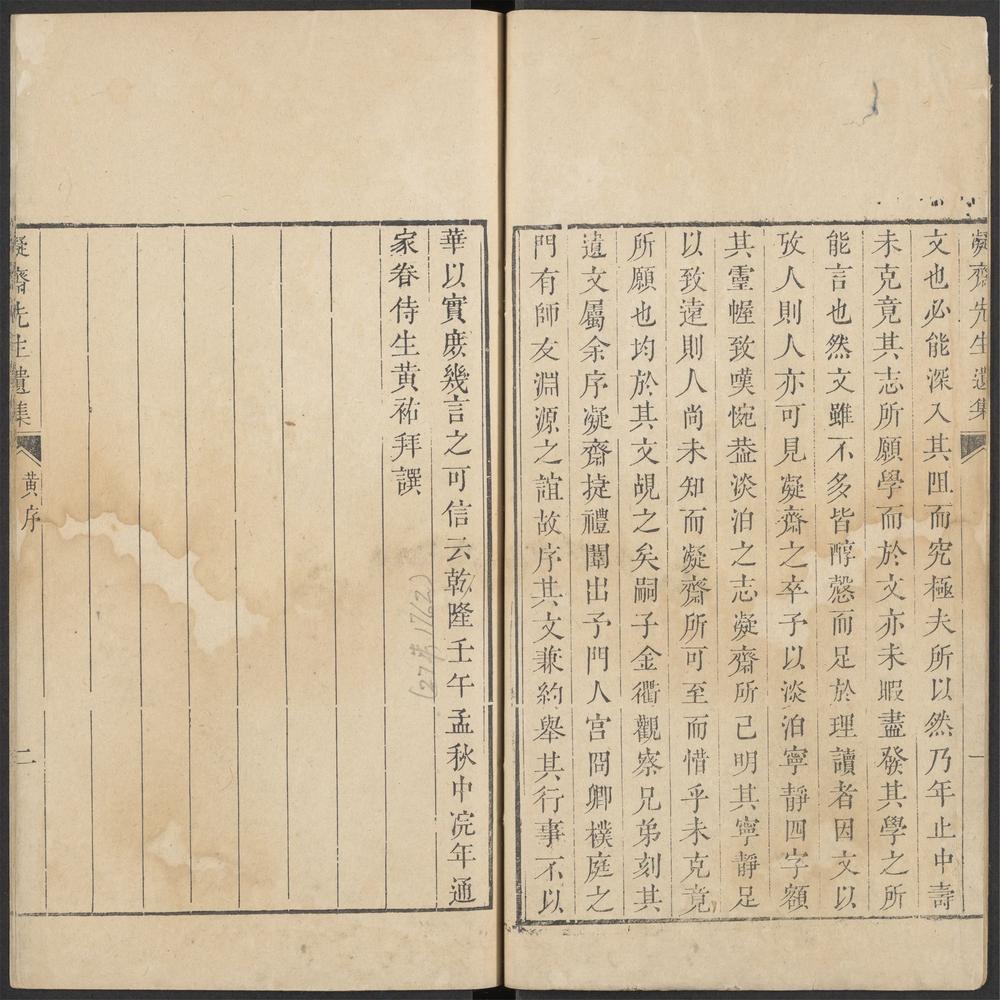 凝齋先生遺集
一
文也必能深入其阻而究極夫所以然乃年止中壽
未克竟其志所願學而於文亦未暇盡發其學之所
能言也然文雖不多皆醇慤而足於理讀者因文以
攷人則人亦可見凝齋之卒予以淡泊寧靜四字額
其靈幄致嘆惋葢淡泊之志凝齋所已明其寧靜足
以致遠則人尚未知而凝齋所可至而惜乎未克竟
所願也均於其文覘之矣嗣子金衢觀察兄弟刻其
遺文屬余序凝齋捷禮闈出予門人宮冏卿樸庭之
門有師友淵源之誼故序其文兼約舉其行事不以
華以實庻幾言之可信云乾隆壬午孟秋中浣年通
(27年1762)
家眷侍生黃祐拜譔
凝齋先生遺集
黃序
二